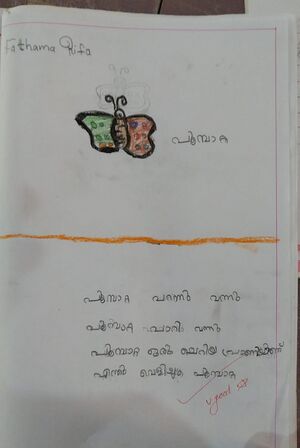 Fathama Rifa
പൂമ്പാറ്റ
പൂമ്പാറ്റ പറന്നു വന്നു
പൂമ്പാറ്റ പാറി വന്നു
പൂമ്പാറ്റ ഒരു ചെറിയ പ്രാണിയാണ്
എന്ത് പൂമ്പാറ്റ
v good